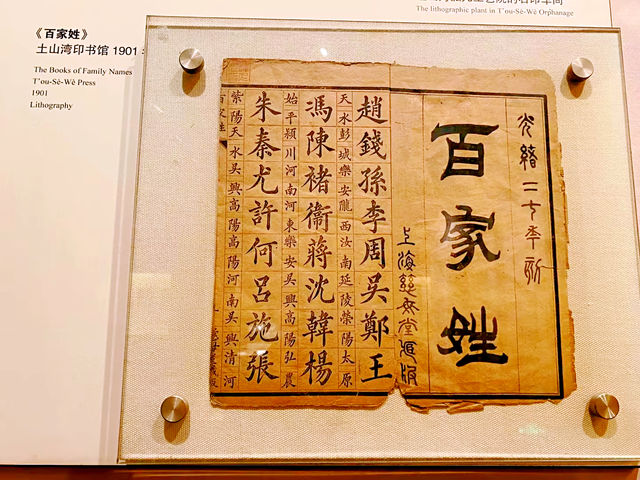 的石印车间
The lithographic plant in T'ou-Sè-Wè Orphanage
《百家姓》
土山湾印书馆 1901
The Books of Family Names
T'ou-Sè-Wè Press
1901
Lithography
光緒二七季
百家姓
上海慈母堂藏版
趙錢孫李周吳鄭王
天水彭城樂安隴西汝南延陵滎陽太原
馮陳褚衞蔣沈韓楊
始平潁川河南河東樂安吳興高陽弘農
朱秦尤許何呂施張
紫陽天水吳興高陽高陽河南吳興清河
百家姓